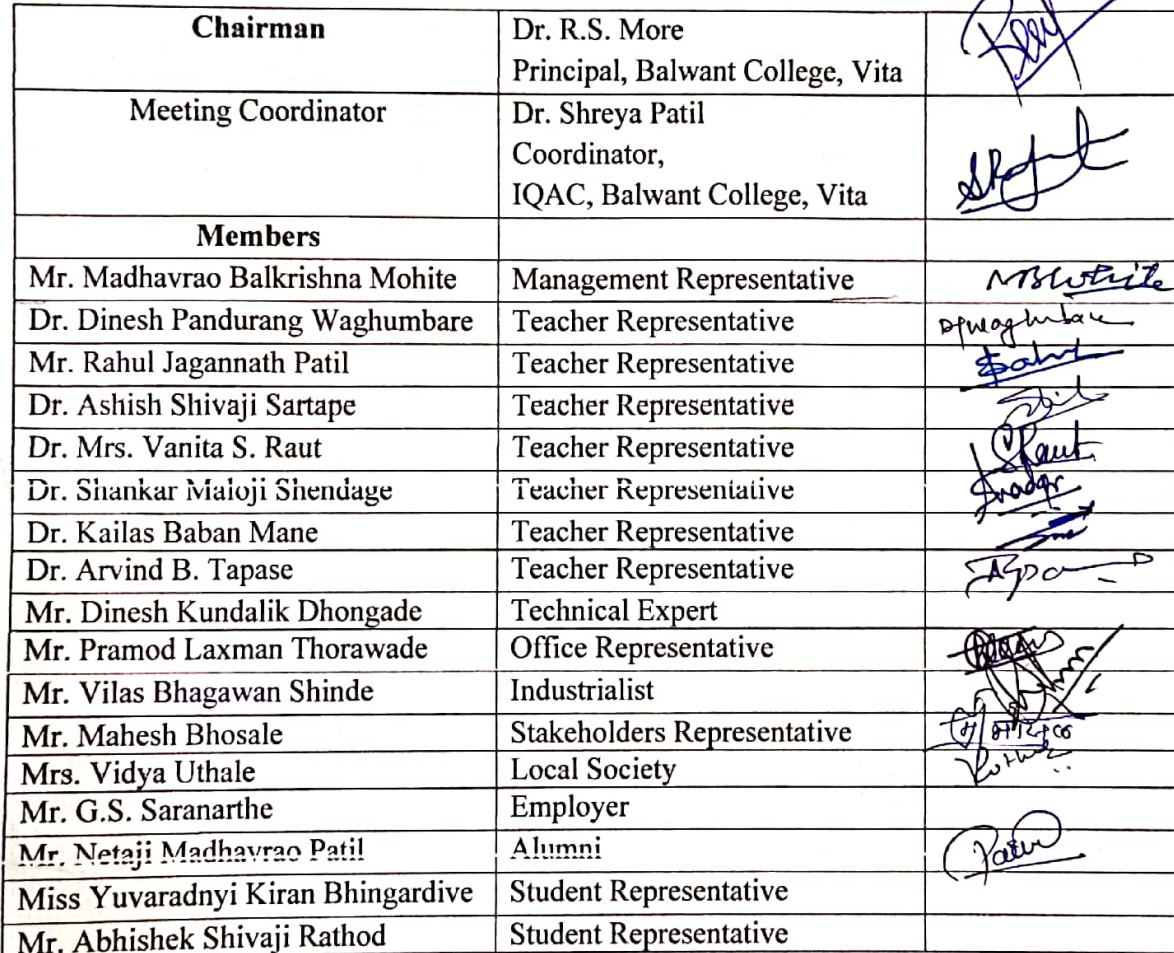 Chairman Dr. R.S. More
Principal, Balwant College, Vita
Meeting Coordinator Dr. Shreya Patil
Coordinator,
IQAC, Balwant College, Vita
Members
Mr. Madhavrao Balkrishna Mohite Management Representative
Dr. Dinesh Pandurang Waghumbare Teacher Representative
Mr. Rahul Jagannath Patil Teacher Representative
Dr. Ashish Shivaji Sartape Teacher Representative
Dr. Mrs. Vanita S. Raut Teacher Representative
Dr. Shankar Maloji Shendage Teacher Representative
Dr. Kailas Baban Mane Teacher Representative
Dr. Arvind B. Tapase Teacher Representative
Mr. Dinesh Kundalik Dhongade Technical Expert
Mr. Pramod Laxman Thorawade Office Representative
Mr. Vilas Bhagawan Shinde Industrialist
Mr. Mahesh Bhosale Stakeholders Representative
Mrs. Vidya Uthale Local Society
Mr. G.S. Saranarthe Employer
Mr. Netaji Madhavrao Patil Alumni
Miss Yuvaradnyi Kiran Bhingardive Student Representative
Mr. Abhishek Shivaji Rathod Student Representative